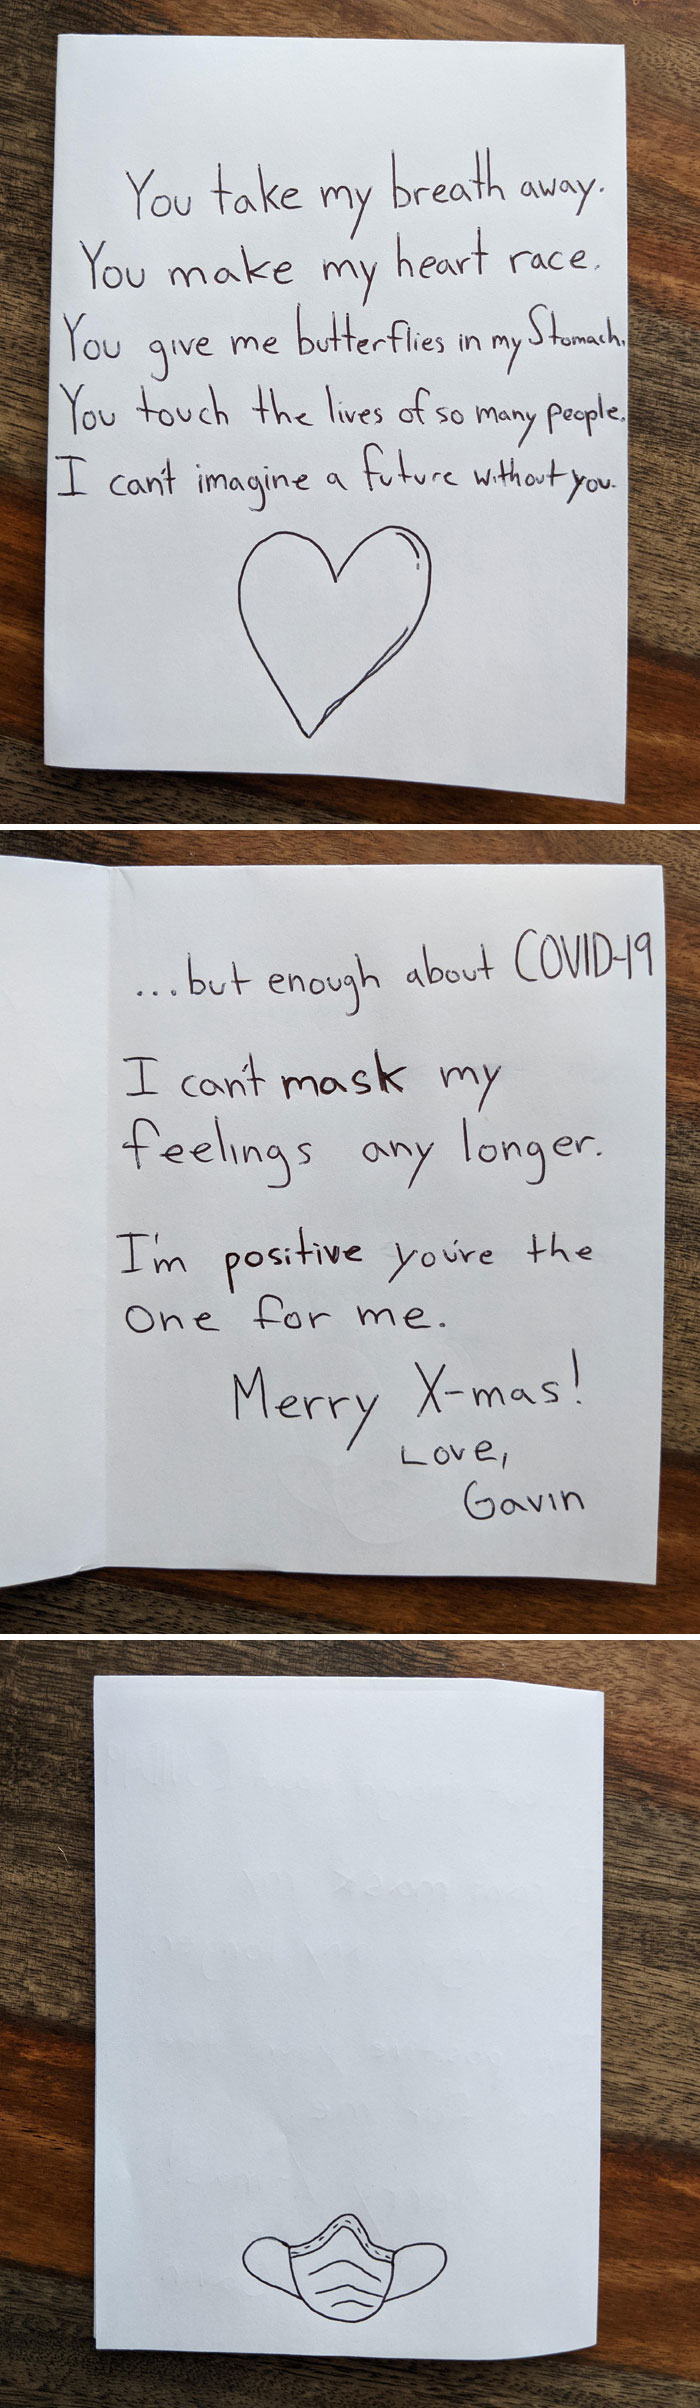 You take my breath away.
You make my heart race.
You give me butterflies in my Stomach.
You touch the lives of so many people.
I can't imagine a future without you.
...but enough about COVID-19
I can't mask my
feelings any longer.
I'm positive you're the
one for me.
Merry X-mas!
Love,
Gavin